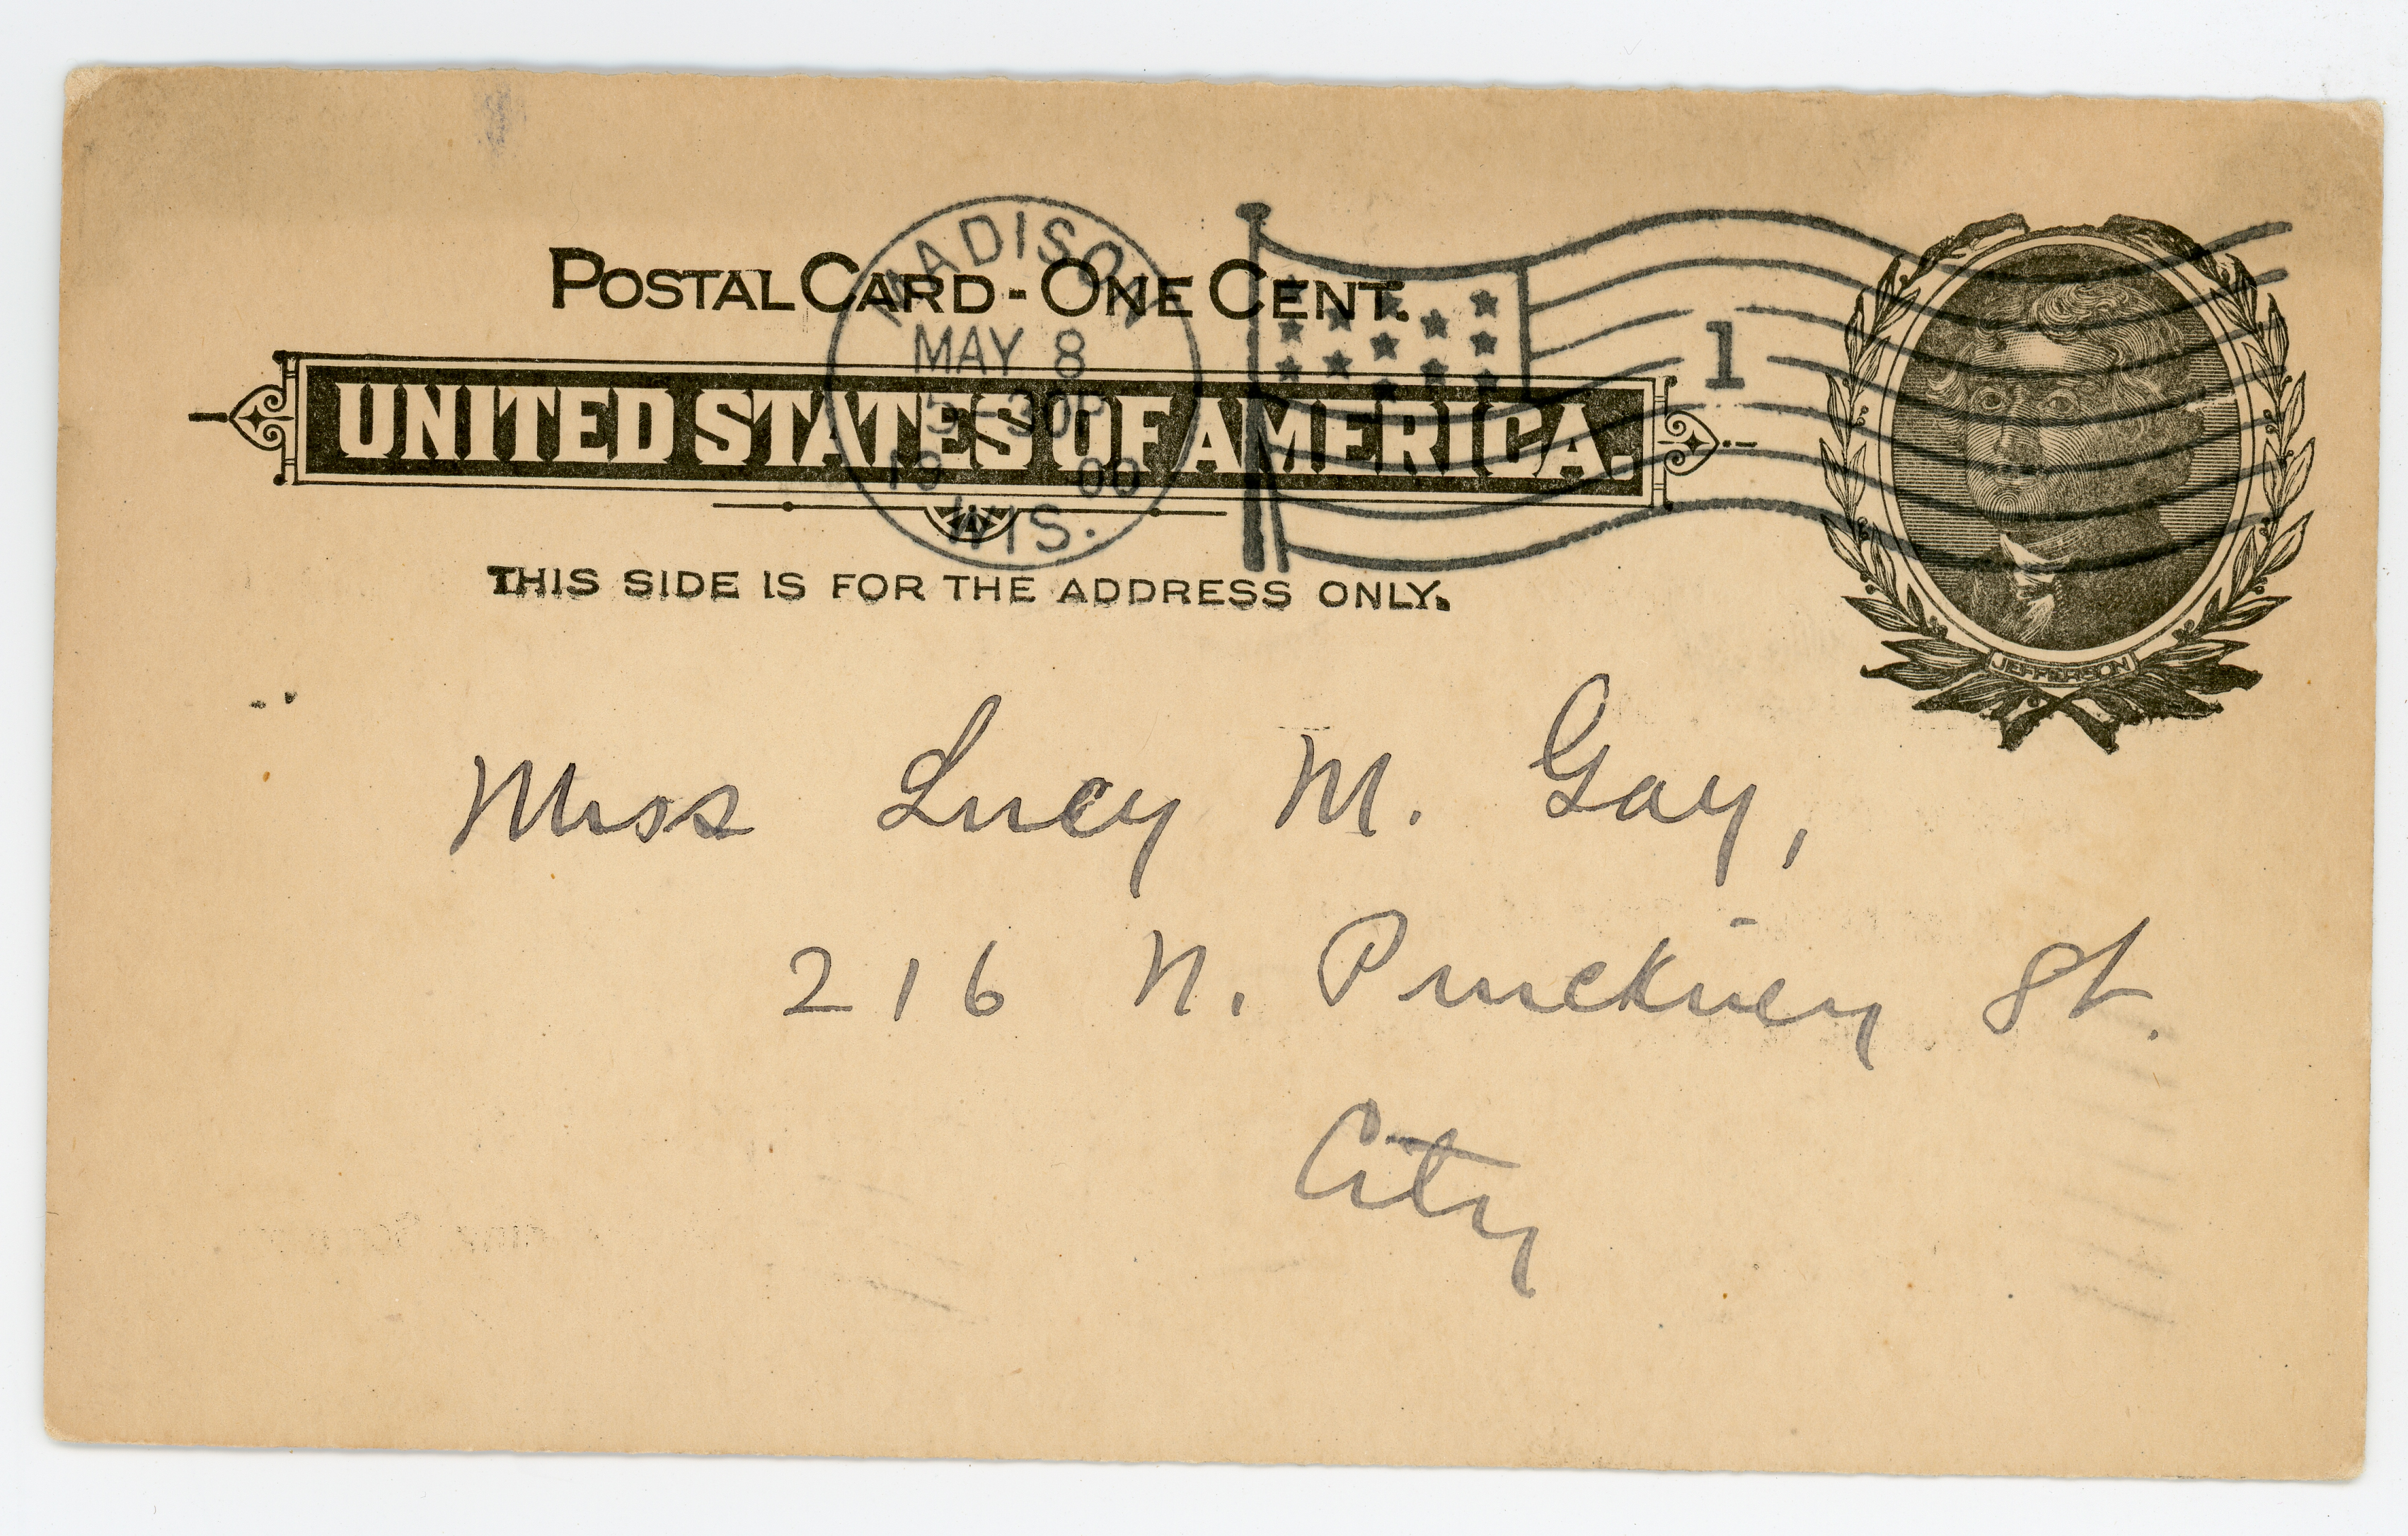 POSTAL CARD - ONE CENT.
UNITED STATES OF AMERICA.
THIS SIDE IS FOR THE ADDRESS ONLY.
MADISON
MAY 8
5-30P
19 00
WIS.
1
JEFFERSON
Miss Lucy M. Gay,
216 N. Pinckney St.
City